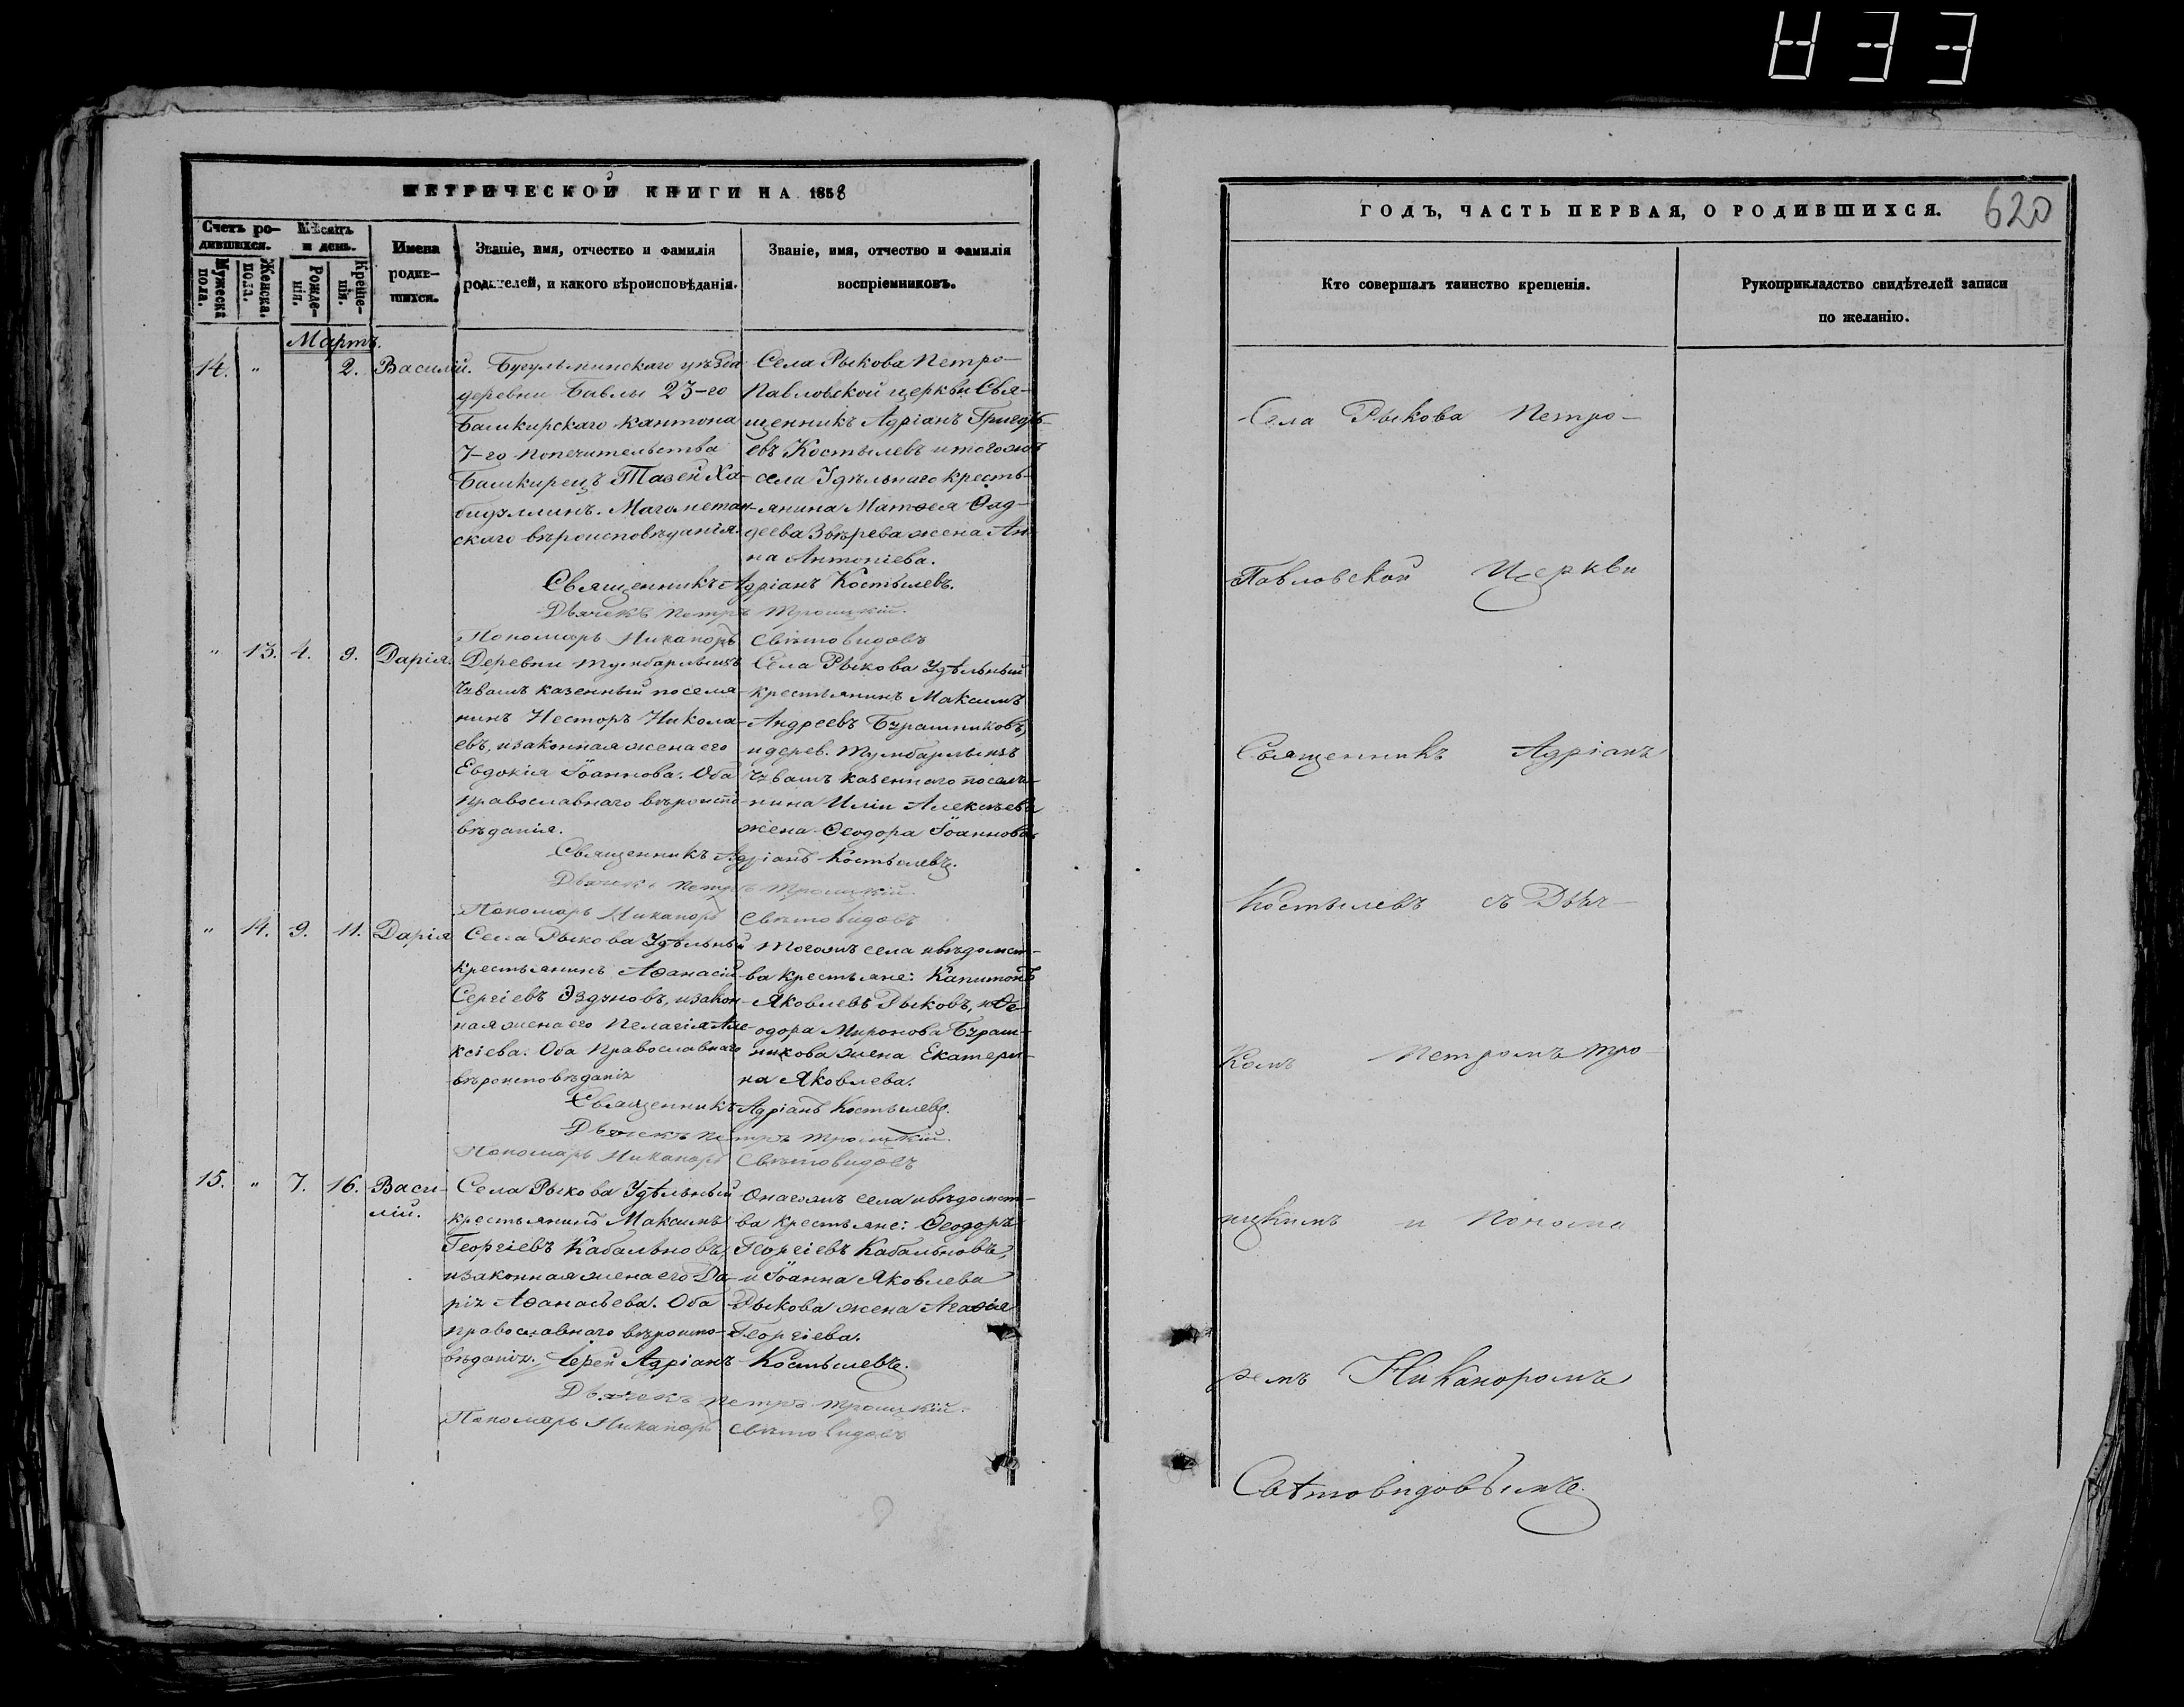 МЕТРИЧЕСКОЙ КНИГИ НА 1858
Счетъ ро-
дившихся.
Мѣсяцъ
и день.
Мужеска
пола.
Женска.
пола.
Рожде-
нія.
Креще-
нія.
Имена
родив-
шихся.
Званіе, имя, отчество и фамилія
родителей, и какого вѣроисповѣданія.
Званіе, имя, отчество и фамилія
воспріемниковъ.
Мартъ.
14. " 2. Василій.
Бугульминскаго уѣзда
деревни Бавлы 23-го
Башкирскаго кантона
7-го попечительства
Башкирецъ Тазей Ха-
бидуллинъ. Магометан-
скаго вѣроисповѣданія.
Села Рыкова Петро-
Павловской церкви Свя-
щенникъ Адріанъ Григорь-
евъ Костылевъ и тогожъ
села Удѣльнаго кресть-
янина Матѳея Ѳад-
деева Звѣрева жена Ан-
на Антоніева.
Священникъ Адріанъ Костылевъ.
Дьячекъ Петръ Троицкій.
Пономарь Никаноръ Свѣтовидовъ
" 13. 4. 9. Дарія.
Деревни Тумбарлы изъ
Чувашъ казенный поселя-
нинъ Несторъ Никола-
евъ, и законная жена его
Евдокія Іоаннова. Оба
православнаго вѣроиспо-
вѣданія.
Села Рыкова Удѣльный
крестьянинъ Максимъ
Андреевъ Бурашниковъ,
и дерев. Тумбарлы изъ
Чувашъ казеннаго поселя-
нина Иліи Алексѣева
жена Ѳеодора Іоаннова.
Священникъ Адріанъ Костылевъ.
Дьячекъ Петръ Троицкій.
Пономарь Никаноръ Свѣтовидовъ
" 14. 9. 11. Дарія
Села Рыкова Удѣльный
крестьянинъ Аѳанасій
Сергіевъ Эздуновъ, и закон-
ная жена его Пелагія Але-
ксіева. Оба Православнаго
вѣроисповѣданія
Тогожъ села и вѣдомст-
ва крестьяне: Капитонъ
Яковлевъ Рыковъ, и Ѳе-
одора Миронова Бураш-
никова жена Екатери-
на Яковлева.
Священникъ Адріанъ Костылевъ.
Дьячекъ Петръ Троицкій.
Пономарь Никаноръ Свѣтовидовъ
15. " 7. 16. Васи-
лій.
Села Рыкова Удѣльный
крестьянинъ Максимъ
Георгіевъ Кабальновъ,
и законная жена его Да-
рія Аѳанасьева. Оба
православнаго вѣроиспо-
вѣданія. Іерей Адріанъ Костылевъ.
Онагожъ села и вѣдомст-
ва крестьяне: Ѳеодоръ
Георгіевъ Кабальновъ,
и Іоанна Яковлева
Рыкова жена Агаѳія
Георгіева.
Дьячекъ Петръ Троицкій.
Пономарь Никаноръ Свѣтовидовъ
ГОДЪ, ЧАСТЬ ПЕРВАЯ, О РОДИВШИХСЯ.
620
Кто совершалъ таинство крещенія.
Рукоприкладство свидѣтелей записи
по желанію.
Села Рыкова Петро-
Павловской Церкви
Священникъ Адріанъ
Костылевъ съ Дьяч-
комъ Петромъ Тро-
ицкимъ и Понома
ремъ Никаноромъ
Свѣтовидовымъ.